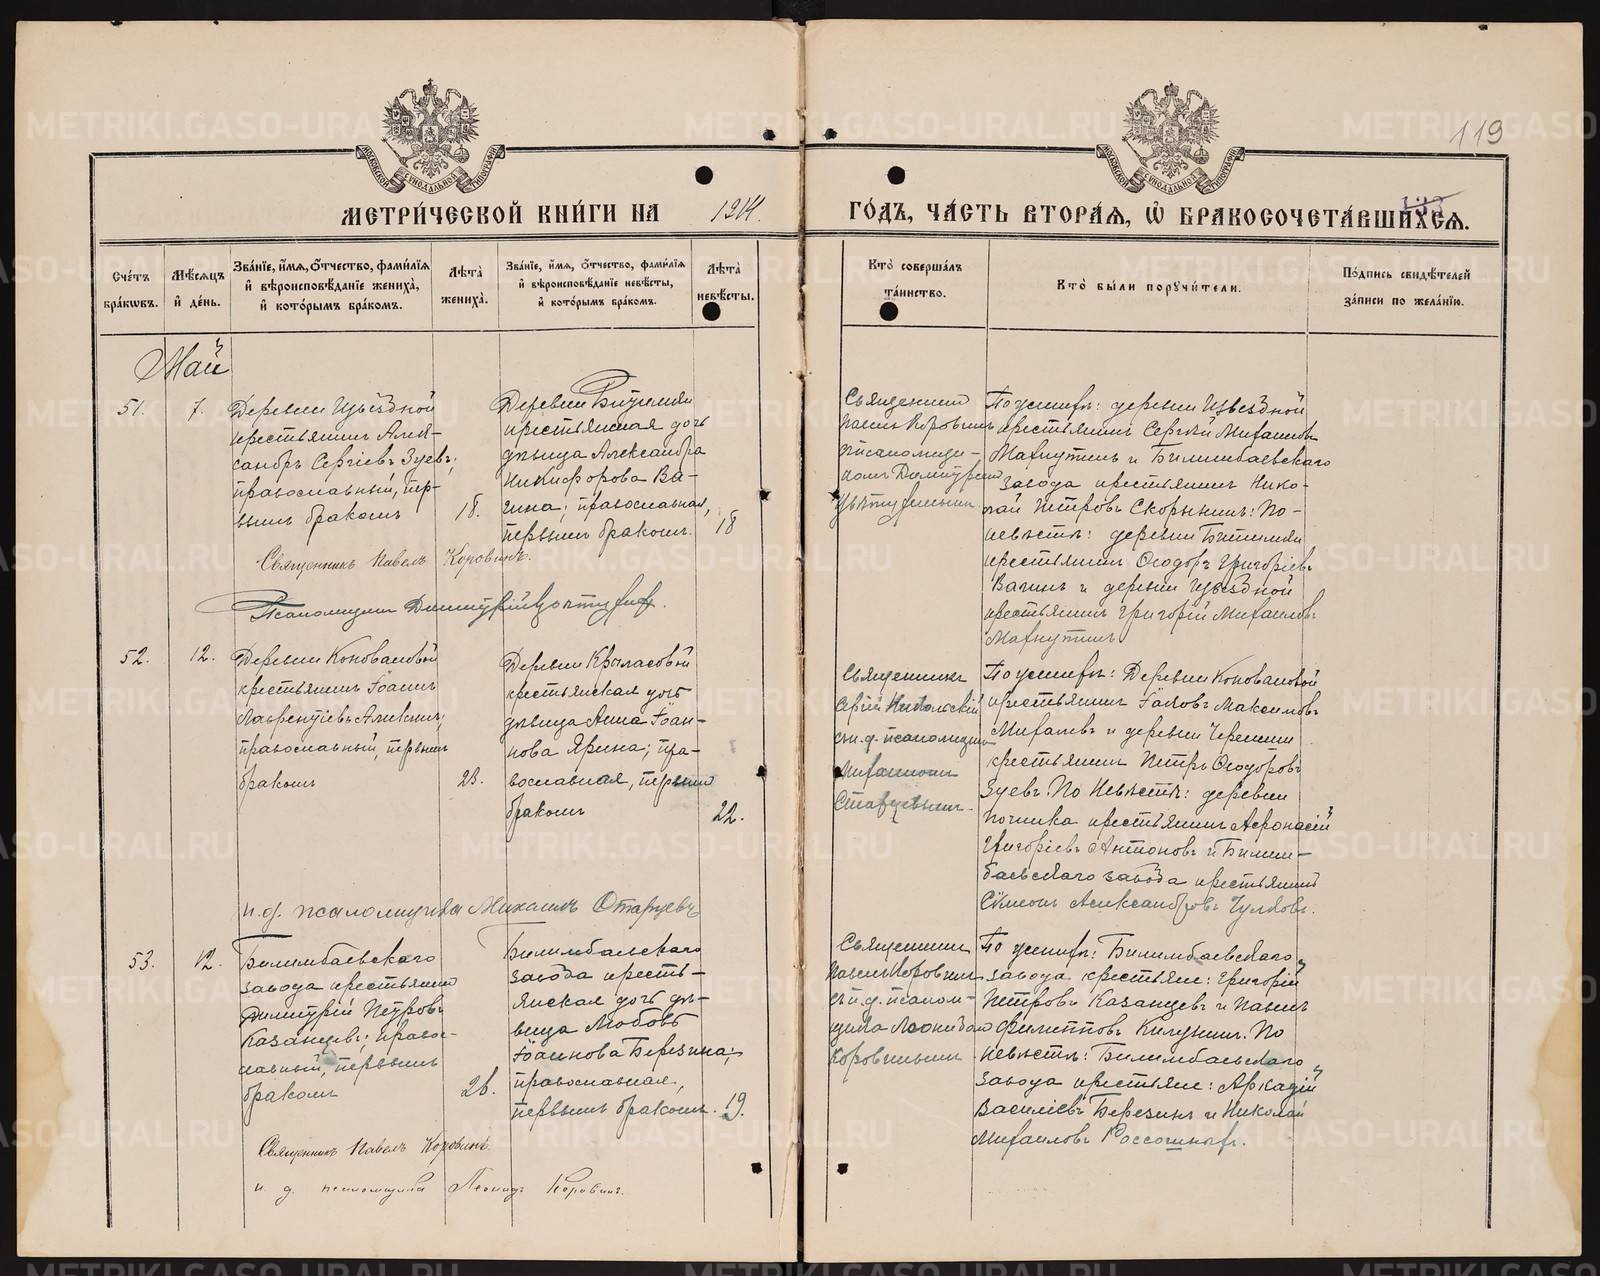 119
МЕТРИ́ЧЕСКОЙ КНИ́ГИ НА 1914. ГО́ДЪ, ЧА́СТЬ ВТОРА́Я, Ѡ҆ БРАКОСОЧЕТА́ВШИХСЯ.
Сче́тъ бра́кѡвъ.
Мѣ́сяцъ и҆ де́нь.
Зва́нїе, и҆́мя, ѻ҆́тчество, фами́лїя и҆ вѣроисповѣ́данїе жениха̀, и҆ кото́рымъ бра́комъ.
Лѣта̀ жениха̀.
Зва́нїе, и҆́мя, ѻ҆́тчество, фами́лїя и҆ вѣроисповѣ́данїе невѣ́сты, и҆ кото́рымъ бра́комъ.
Лѣта̀ невѣ́сты.
Кто̀ соверша́лъ та́инство.
Кто̀ бы́ли порꙋчи́тели.
По́дпись свидѣ́телей за́писи по жела́нїю.
Май
51.
7.
Деревни Извѣздной
крестьянинъ Алек-
сандръ Сергіевъ Зуевъ;
православный, пер-
вымъ бракомъ
18.
Деревни Битимки
крестьянская дочь
дѣвица Александра
Никифорова Ва-
гина; православная,
первымъ бракомъ.
18
Священникъ
Павелъ Коровинъ
псаломщи-
комъ Димитріемъ
По женихѣ: деревни Извѣздной
крестьянинъ Сергѣй Михаиловъ
Махнутинъ и Билимбаевскаго
завода крестьянинъ Нико-
лай Петровъ Скорынинъ: По-
невѣстѣ: деревни Битимки
крестьянинъ Ѳеодоръ Григоріевъ
Вагинъ и деревни Извѣздной
крестьянинъ Григорій Михаиловъ
Махнутинъ
Священникъ Павелъ Коровинъ.
Псаломщикъ Димитрій
52.
12.
Деревни Коноваловой
крестьянинъ Іоаннъ
Лаврентіевъ Аликинъ;
православный, первымъ
бракомъ
23.
Деревни Крыласовой
крестьянская дочь
дѣвица Анна Іоан-
нова Ярина; пра-
вославная, первымъ
бракомъ
22.
Священникъ
Сергій Никольскій
съ и. д. псаломщика
Михаиломъ
По женихѣ: Деревни Коноваловой
крестьянинъ Іаковъ Максимовъ
Михалевъ и деревни Черемши
крестьянинъ Петръ Ѳеодоровъ
Зуевъ. По Невѣстѣ: деревни
Починка крестьянинъ Аѳонасій
Григоріевъ Антоновъ и Билим-
баевскаго завода крестьянинъ
Сѵмеонъ Александровъ Гуляевъ.
и. д. псаломщика Михаилъ
53.
12.
Билимбаевскаго
завода крестьянинъ
Димитрій Петровъ
Казанцевъ; право-
славный, первымъ
бракомъ
Билимбаевскаго
завода кресть-
янская дочь дѣ-
вица Любовь
Іоаннова Березина;
православная,
первымъ бракомъ.
19.
Священникъ
Павелъ Коровинъ
съ и. д. псалом-
щика Леонидомъ
Коровинымъ
По женихѣ: Билимбаевскаго
завода крестьяне: Григорій
Петровъ Казанцевъ и Павелъ
Филипповъ. По
невѣстѣ: Билимбаевскаго
завода крестьяне: Аркадій
Василіевъ Березинъ и Николай
Михаиловъ Россошныхъ.
Священникъ Павелъ Коровинъ.
и. д. псаломщика Леонидъ Коровинъ.
METRIKI.GASO-URAL.RU